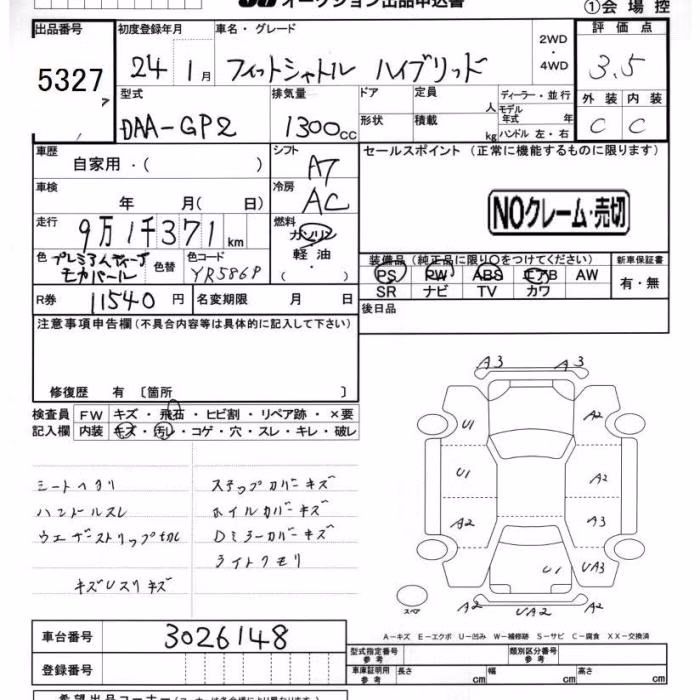 オークション出品申込書
①会場控
出品番号
5327
初度登録年月
24 1月
車名・グレード
フィットシャトル ハイブリッド
2WD
・
4WD
評価点
3.5
外装 内装
C C
型式
DAA-GP2
排気量
1300cc
ドア
形状
定員
人
積載
kg
ディーラー・並行
モデル
年式 年
ハンドル 左・右
車歴
自家用・( )
シフト
A7
セールスポイント(正常に機能するものに限ります)
NOクレーム・売切
車検
年 月( 日)
冷房
AC
走行
9万1千371km
燃料
ガソリン
軽油
・
( )
色
モカパール
色替
色コード
YR586P
装備品(純正品に限り○をつけてください)
PS PW ABS エアB AW
SR ナビ TV カワ
新車保証書
有・無
R券 11540円
名変期限 月 日
後日品
注意事項申告欄(不具合内容等は具体的に記入して下さい)
修復歴 有〔箇所 〕
検査員
記入欄
FW キズ・飛石・ヒビ割・リペア跡・×要
内装 キズ・汚レ・コゲ・穴・スレ・キレ・破レ
シートヘタリ
ハンドルスレ
ウェザーストリップ切れ
キズUスリキズ
ステップカバーキズ
ホイルカバーキズ
Dミラーカバーキズ
ライトクモリ
A3 A3
U1 A2
U1 A2
A2 A3
U1 UA3
A2 UA2 A2
スペア
A-キズ E-エクボ U-凹み W-補修跡 S-サビ C-腐食 XX-交換済
車台番号
3026148
登録番号
型式指定番号
参考
類別区分番号
参考
車庫証明用
参考
長さ cm
幅 cm
高さ cm
希望出品コーナー